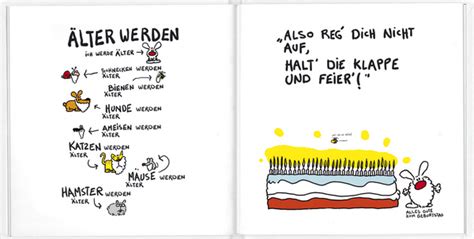 ÄLTER WERDEN
ich WERDE ÄLTER
SCHNECKEN WERDEN
ÄLTER
BIENEN WERDEN
ÄLTER
HUNDE WERDEN
ÄLTER
AMEISEN WERDEN
ÄLTER
KATZEN WERDEN
ÄLTER
MÄUSE WERDEN
ÄLTER
HAMSTER WERDEN
ÄLTER
„ALSO REG' DICH NICHT
AUF,
HALT' DIE KLAPPE
UND FEIER'!"
ALLES GUTE
ZUM GEBURTSTAG